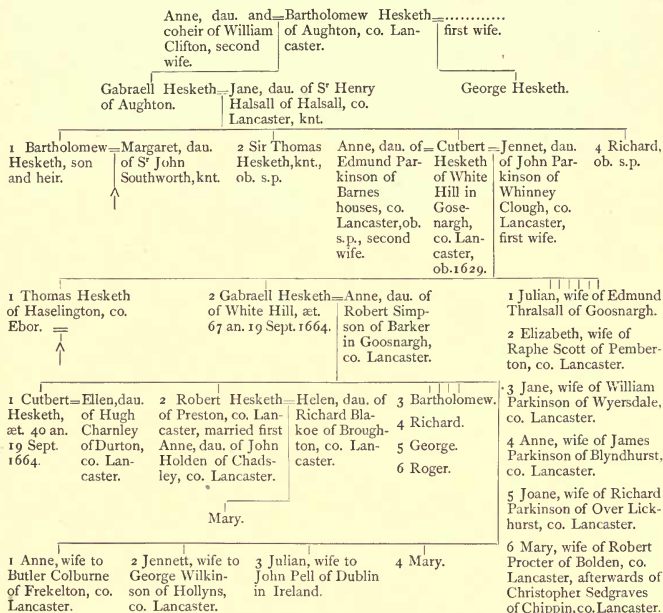 Anne, dau. and=Bartholomew Hesketh=............
coheir of William
Clifton, second
wife.
of Aughton, co. Lan-
caster.
first wife.
Gabraell Hesketh=Jane, dau. of Sʳ Henry
of Aughton.
Halsall of Halsall, co.
Lancaster, knt.
George Hesketh.
1 Bartholomew=Margaret, dau.
Hesketh, son
and heir.
of Sʳ John
Southworth, knt.
2 Sir Thomas
Hesketh, knt.,
ob. s.p.
Anne, dau. of=
Edmund Par-
kinson of
Barnes
houses, co.
Lancaster, ob.
s.p., second
wife.
Cutbert
Hesketh
of White
Hill in
Gose-
nargh,
co. Lan-
caster,
ob. 1629.
=Jennet, dau.
of John Par-
kinson of
Whinney
Clough, co.
Lancaster,
first wife.
4 Richard,
ob. s.p.
1 Thomas Hesketh
of Haselington, co.
Ebor. =
2 Gabraell Hesketh=Anne, dau. of
of White Hill, æt.
67 an. 19 Sept. 1664.
Robert Simp-
son of Barker
in Goosnargh,
co. Lancaster.
1 Julian, wife of Edmund
Thralsall of Goosnargh.
2 Elizabeth, wife of
Raphe Scott of Pember-
ton, co. Lancaster.
3 Jane, wife of William
Parkinson of Wyersdale,
co. Lancaster.
4 Anne, wife of James
Parkinson of Blyndhurst,
co. Lancaster.
5 Joane, wife of Richard
Parkinson of Over Lick-
hurst, co. Lancaster.
6 Mary, wife of Robert
Procter of Bolden, co.
Lancaster, afterwards of
Christopher Sedgraves
of Chippin, co. Lancaster.
1 Cutbert=Ellen, dau.
Hesketh,
æt. 40 an.
19 Sept.
1664.
of Hugh
Charnley
of Durton,
co. Lan-
caster.
2 Robert Hesketh=Helen, dau. of
of Preston, co. Lan-
caster, married first
Anne, dau. of John
Holden of Chads-
ley, co. Lancaster.
Richard Bla-
koe of Brough-
ton, co. Lan-
caster.
3 Bartholomew.
4 Richard.
5 George.
6 Roger.
Mary.
1 Anne, wife to
Butler Colburne
of Frekelton, co.
Lancaster.
2 Jennett, wife to
George Wilkin-
son of Hollyns,
co. Lancaster.
3 Julian, wife to
John Pell of Dublin
in Ireland.
4 Mary.